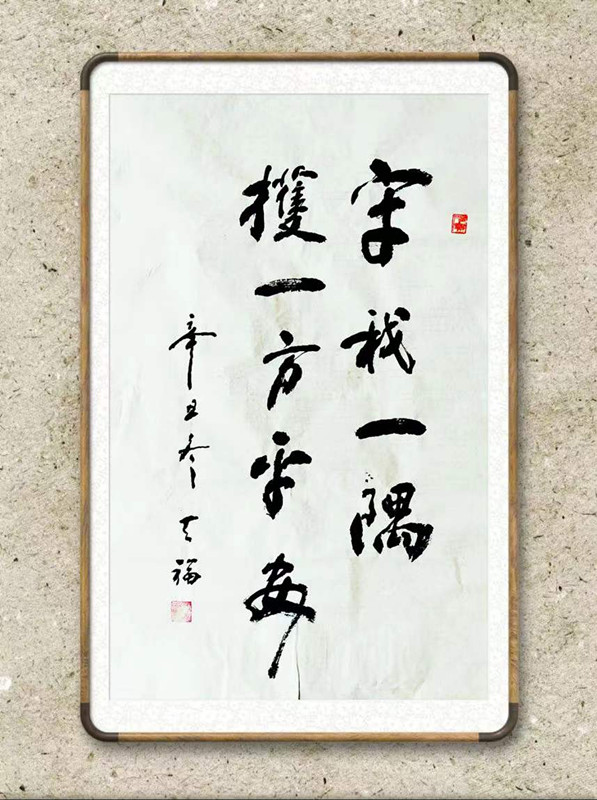 守我一隅
擭一方平安
辛丑冬天福